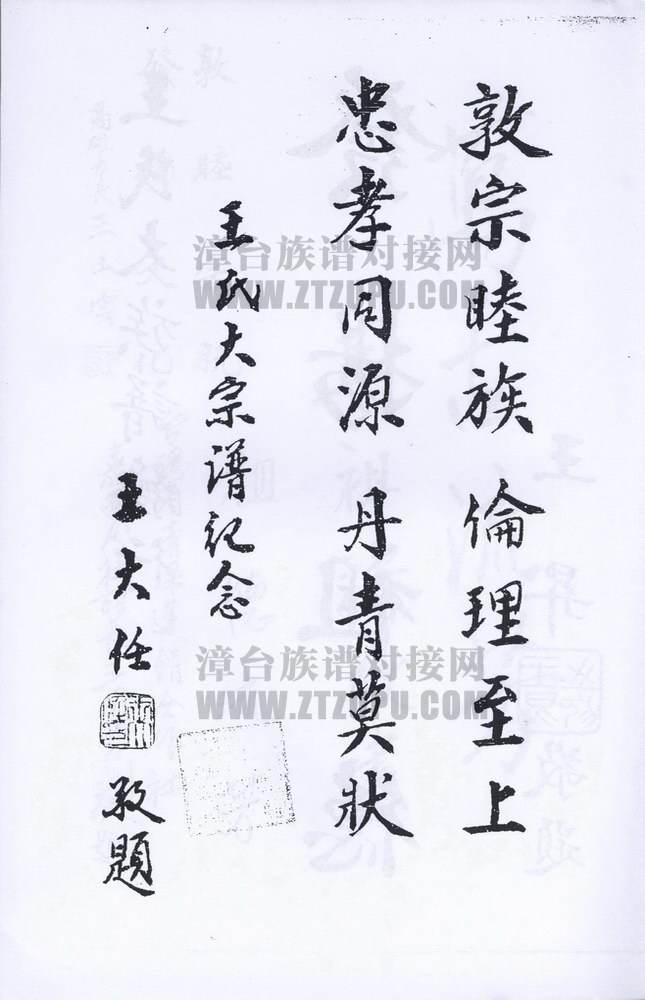 敦宗睦族 倫理至上
忠孝同源 丹青莫狀
王氏大宗譜紀念
王大任 敬題
漳台族谱对接网
WWW.ZTZUPU.COM
漳台族谱对接网
WWW.ZTZUPU.COM